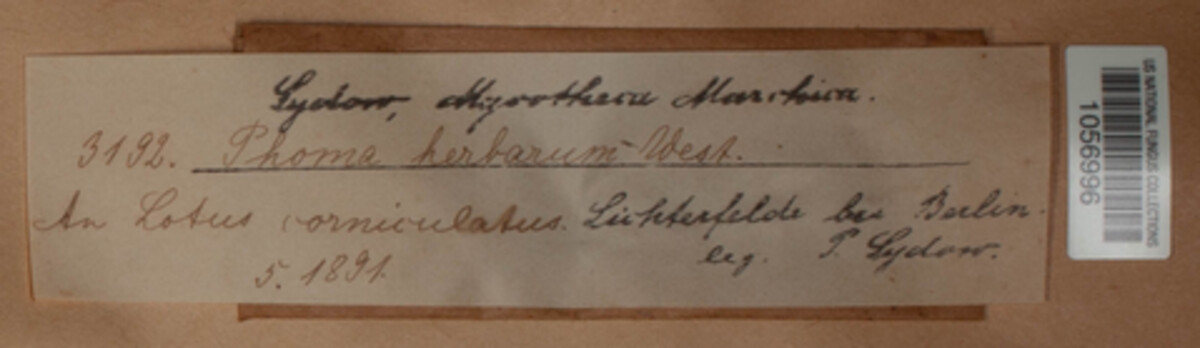 Sydow, Mycotheca Marchica.
3192. Phoma herbarum West.
An Lotus corniculatus. Lichterfelde bei Berlin.
5. 1891. leg. P. Sydow.
US NATIONAL FUNGUS COLLECTIONS
1056996